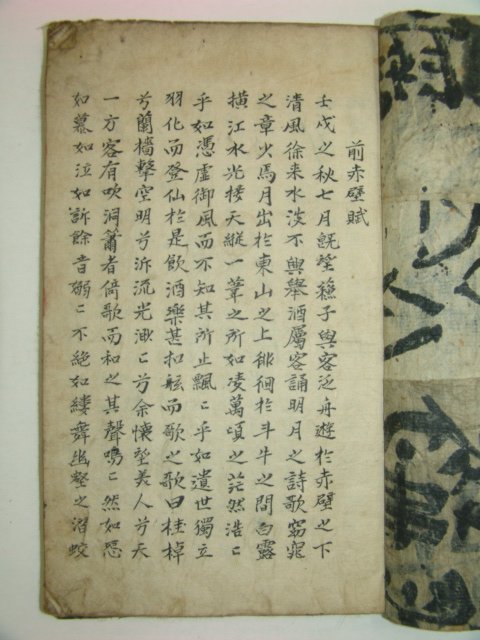 前赤壁賦
壬戌之秋七月旣望蘓子與客泛舟遊於赤壁之下
清風徐来水波不興舉酒屬客誦明月之詩歌窈窕
之章少焉月出於東山之上徘徊於斗牛之間白露
橫江水光接天縱一葦之所如凌萬頃之茫然浩〻
乎如憑虛御風而不知其所止飄〻乎如遺世獨立
羽化而登仙於是飮酒樂甚扣舷而歌之歌曰桂棹
兮蘭檣擊空明兮泝流光渺〻兮余懷望美人兮天
一方客有吹洞簫者倚歌而和之其聲鳴〻然如怨
如慕如泣如訴餘音嫋〻不絶如縷舞幽壑之潛蛟